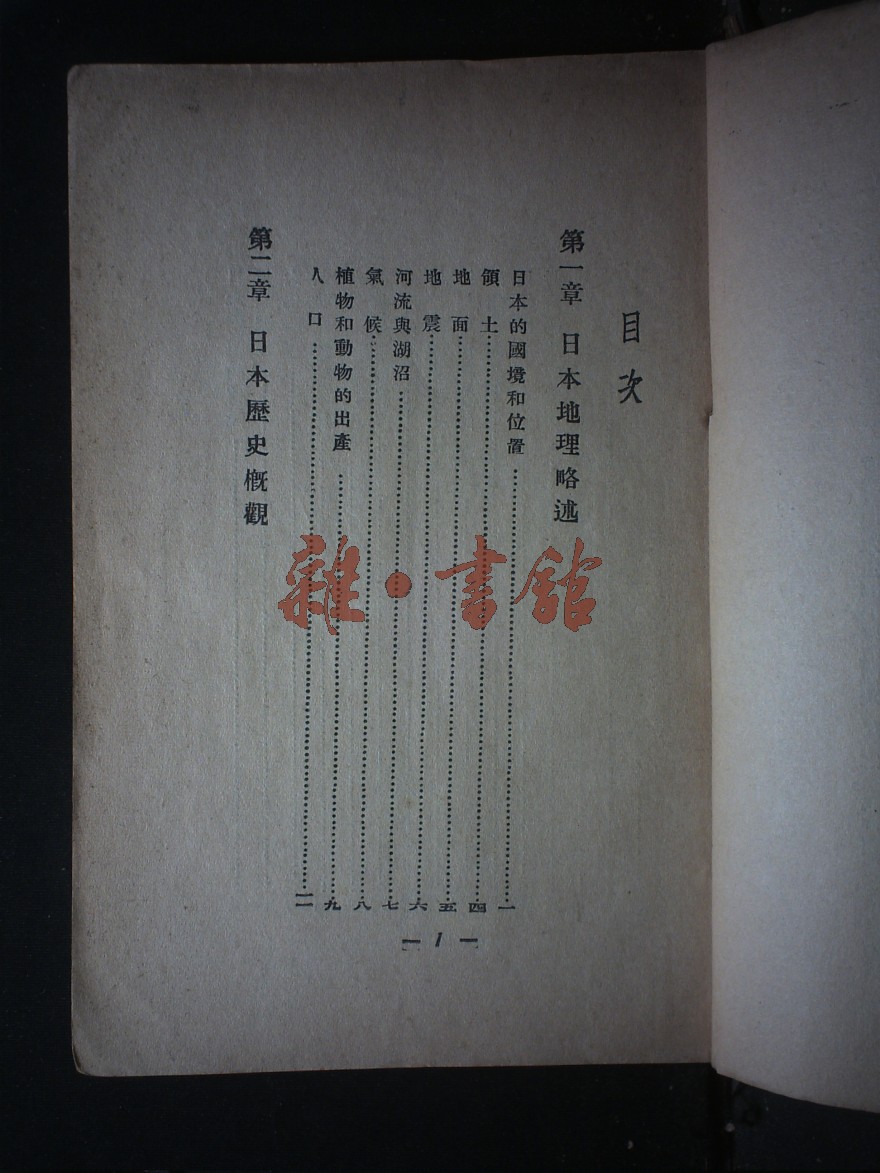 目次
第一章 日本地理略述
日本的國境和位置……一
領土……四
地面……五
地震……六
河流與湖沼……七
氣候……八
植物和動物的出產……九
人口……一一
第二章 日本歷史概觀
— 1 —
雜·書館